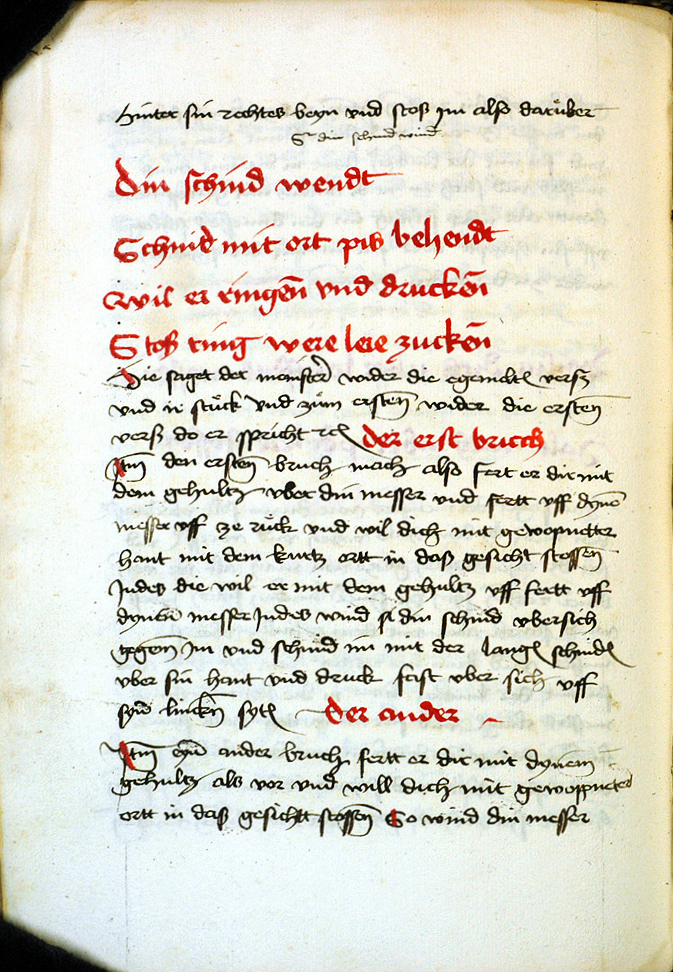 hinter sin rechtes beyn vnd stoß Im also darüber
Din schnid wendt
Schnid mit ort pis behendt
Wil er ringen vnd drucken
Stoß ring were lere zucken
Hie saget der maister wider die egemelt verß
vnd ir stuck Vnd zum ersten wider die ersten
verß do er spricht rc der erst bruch
Itm den ersten bruch mach also fert er dir mit
dem gehultz vber din messer und fertt vff dyne
messer vff ze rück vnd wil dich mit gewopneter
hant mit dem kurtz ortt in daß gesicht stossen
Indes die wil er mit dem gehultz vff fertt vff
dynem messer Indes wind din schnid vbersich
gegen Im vnd schnid im mit der lange schnide
vber sin hant vnd druck fast vber sich vff
syn lincken syte der ander
Itm eyn ander bruch fertt er dir mit dynem
gehultz als vor vnd will dich mit gewoppneter
ortt in daß gesichtt stossen So wind din messer